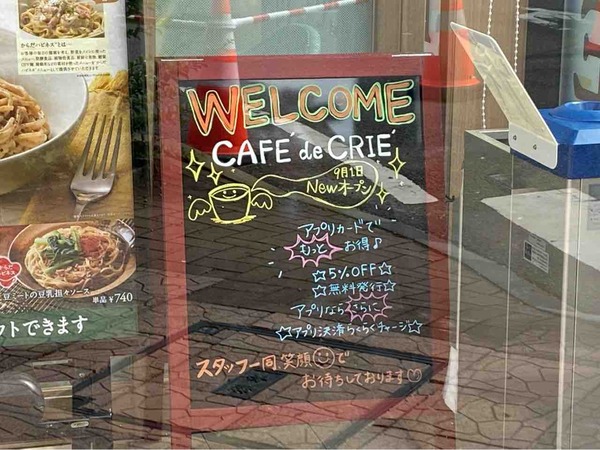 からだハピネス®とは—
WELCOME
CAFÉ de CRIÉ
9月1日
Newオープン
アプリカードで
もっとお得♪
☆5%OFF☆
☆無料発行☆
アプリならさらに
☆アプリ決済らくらくチャージ☆
スタッフ一同笑顔で
お待ちしております♡
からだ
ハピネス
豆ミートの豆乳担々ソース
単品￥740
クトできます